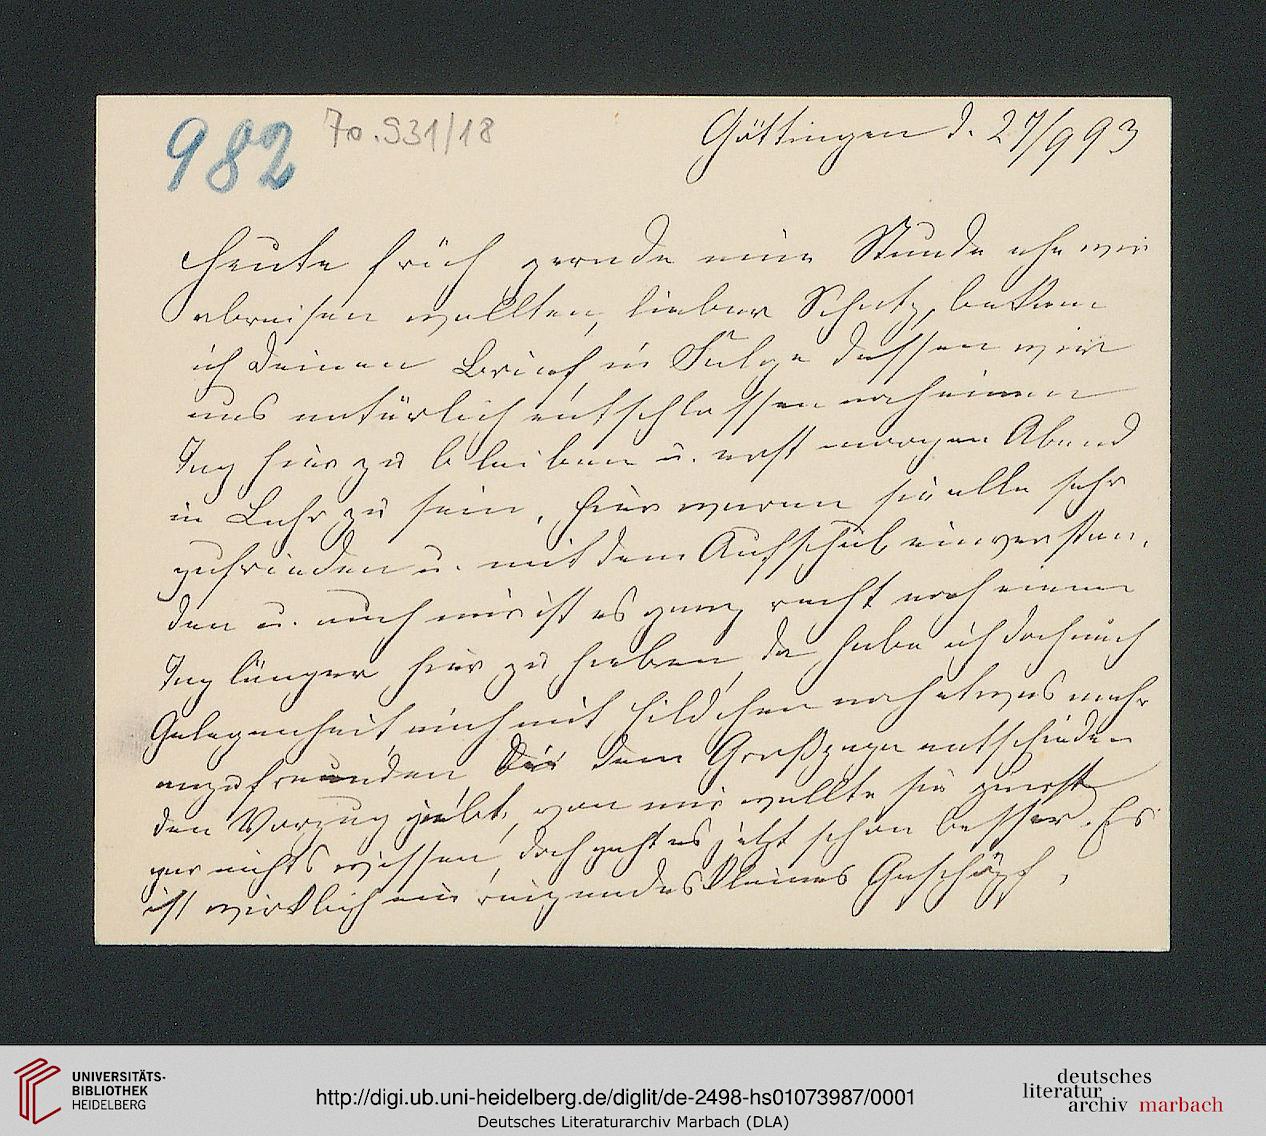 982
70.931/18
Göttingen d. 27/9 93
Heute früh gerade eine Stunde ehe wir
abreisen wollten, lieber Schatz, bekam
ich Deinen Brief, in Folge dessen wir
uns natürlich entschlossen noch einen
Tag hier zu bleiben u. erst morgen Abend
in Lahr zu sein. Hier waren sie alle sehr
zufrieden u. mit dem Aufschub einverstan-
den u. auch mir ist es ganz recht noch einen
Tag länger hier zu haben, da habe ich doch auch
Gelegenheit mich mit Hildchen noch etwas mehr
anzufreunden die dem Großpapa entschieden
den Vorzug giebt, von mir wollte sie zuerst
gar nichts wissen, doch geht es jetzt schon besser. Es
ist wirklich ein reizendes kleines Geschöpf,
UNIVERSITÄTS-
BIBLIOTHEK
HEIDELBERG
http://digi.ub.uni-heidelberg.de/diglit/de-2498-hs01073987/0001
Deutsches Literaturarchiv Marbach (DLA)
deutsches
literatur
archiv marbach